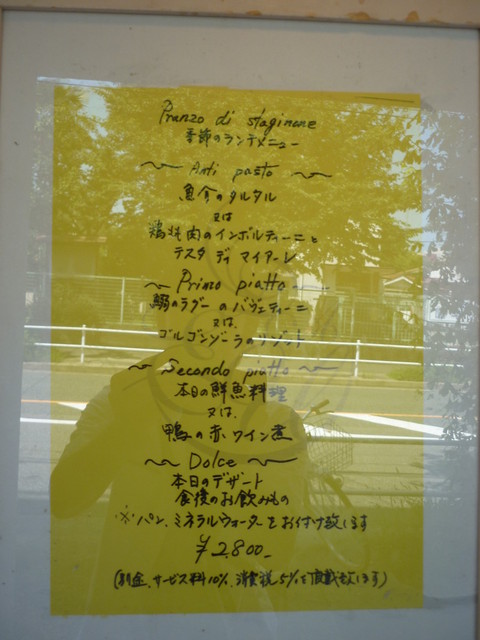 Pranzo di staginone
季節のランチメニュー
Anti pasto
魚介のタルタル
又は
鶏挽肉のインボルティーニと
テスタ ディ マイアーレ
Primo piatto
鰯のラグーのバヴェティーニ
又は、
ゴルゴンゾーラのリゾット
Secondo piatto
本日の鮮魚料理
又は、
鴨の赤ワイン煮
Dolce
本日のデザート
食後のお飲みもの
※パン、ミネラルウォーターをお付け致します
¥2,800-
(別途、サービス料10%、消費税5%を頂戴致します)